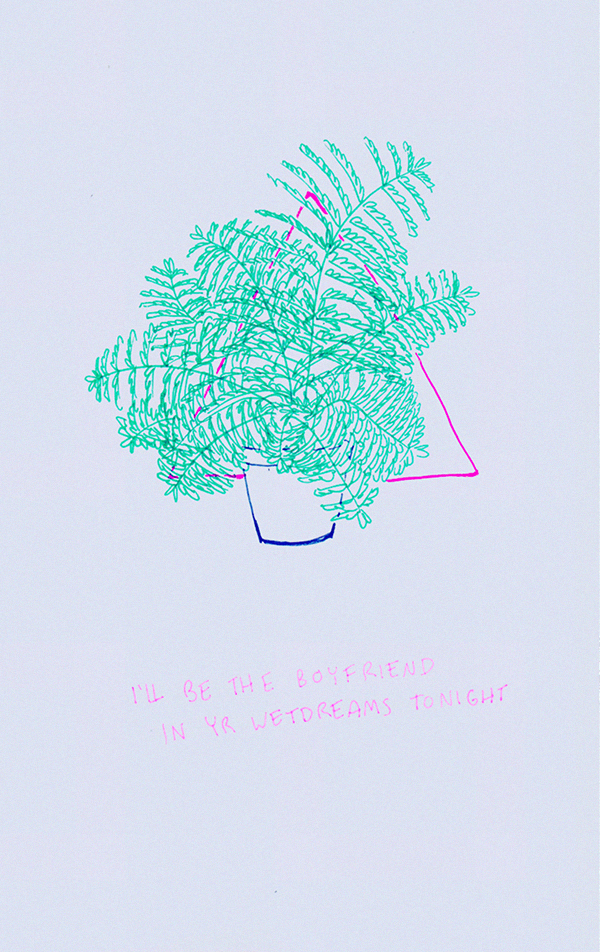 I'LL BE THE BOYFRIEND
IN YR WETDREAMS TONIGHT